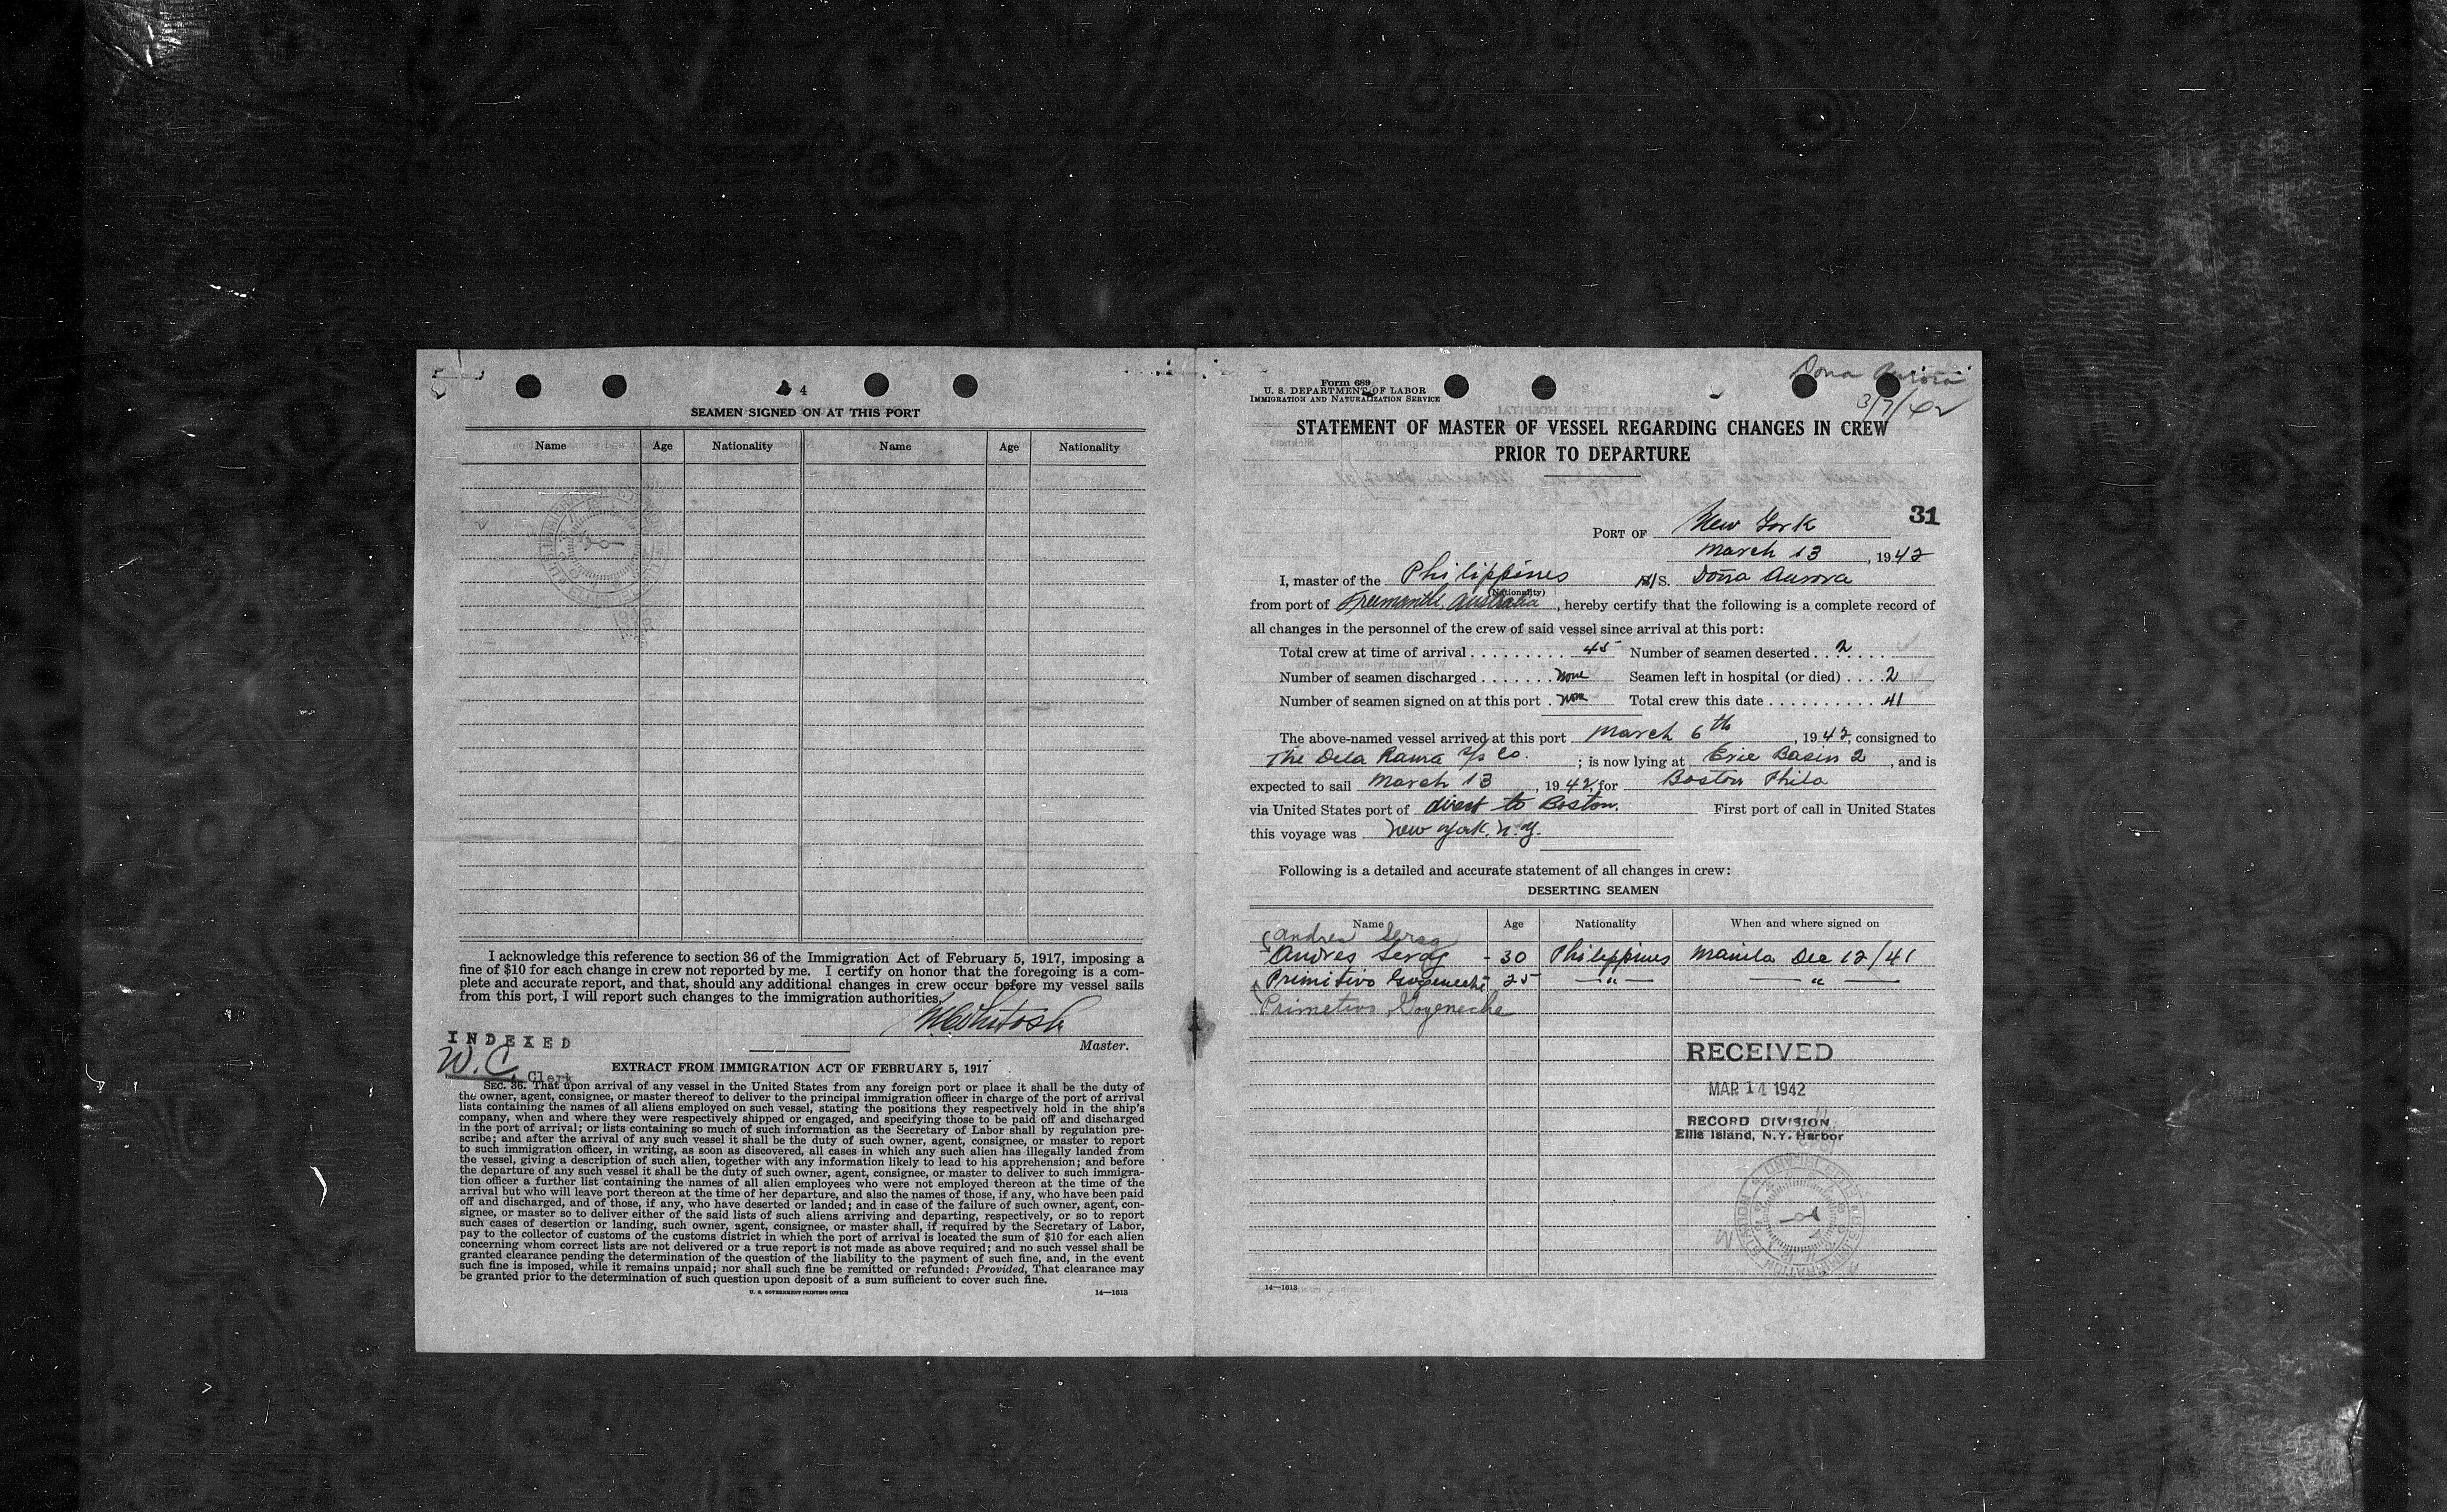 4
SEAMEN SIGNED ON AT THIS PORT
Name Age Nationality Name Age Nationality
I acknowledge this reference to section 36 of the Immigration Act of February 5, 1917, imposing a
fine of $10 for each change in crew not reported by me. I certify on honor that the foregoing is a com-
plete and accurate report, and that, should any additional changes in crew occur before my vessel sails
from this port, I will report such changes to the immigration authorities.
Master.
INDEXED
W.C. Clerk
EXTRACT FROM IMMIGRATION ACT OF FEBRUARY 5, 1917
SEC. 36. That upon arrival of any vessel in the United States from any foreign port or place it shall be the duty of
the owner, agent, consignee, or master thereof to deliver to the principal immigration officer in charge of the port of arrival
lists containing the names of all aliens employed on such vessel, stating the positions they respectively hold in the ship's
company, when and where they were respectively shipped or engaged, and specifying those to be paid off and discharged
in the port of arrival; or lists containing so much of such information as the Secretary of Labor shall by regulation pre-
scribe; and after the arrival of any such vessel it shall be the duty of such owner, agent, consignee, or master to report
to such immigration officer, in writing, as soon as discovered, all cases in which any such alien has illegally landed from
the vessel, giving a description of such alien, together with any information likely to lead to his apprehension; and before
the departure of any such vessel it shall be the duty of such owner, agent, consignee, or master to deliver to such immigra-
tion officer a further list containing the names of all alien employees who were not employed thereon at the time of the
arrival but who will leave port thereon at the time of her departure, and also the names of those, if any, who have been paid
off and discharged, and of those, if any, who have deserted or landed; and in case of the failure of such owner, agent, con-
signee, or master so to deliver either of the said lists of such aliens arriving and departing, respectively, or so to report
such cases of desertion or landing, such owner, agent, consignee, or master shall, if required by the Secretary of Labor,
pay to the collector of customs of the customs district in which the port of arrival is located the sum of $10 for each alien
concerning whom correct lists are not delivered or a true report is not made as above required; and no such vessel shall be
granted clearance pending the determination of the question of the liability to the payment of such fine, and, in the event
such fine is imposed, while it remains unpaid; nor shall such fine be remitted or refunded: Provided, That clearance may
be granted prior to the determination of such question upon deposit of a sum sufficient to cover such fine.
U. S. GOVERNMENT PRINTING OFFICE 14—1613
Form 689
U. S. DEPARTMENT OF LABOR
IMMIGRATION AND NATURALIZATION SERVICE
Dona Aurora
3/7/42
STATEMENT OF MASTER OF VESSEL REGARDING CHANGES IN CREW
PRIOR TO DEPARTURE
31
PORT OF New York
March 13, 1942
I, master of the Philippines M/S. Doña Aurora
(Nationality)
from port of Freemantle, Australia, hereby certify that the following is a complete record of
all changes in the personnel of the crew of said vessel since arrival at this port:
Total crew at time of arrival . . . . . . . . . . 45 Number of seamen deserted . . 2 . . . .
Number of seamen discharged . . . . . . . none Seamen left in hospital (or died) . . . . 2
Number of seamen signed on at this port . none Total crew this date . . . . . . . . . . . 41
The above-named vessel arrived at this port March 6th, 1942, consigned to
The Dela Rama S/S Co. ; is now lying at Erie Basin 2, and is
expected to sail March 13, 1942, for Boston Phila
via United States port of direct to Boston. First port of call in United States
this voyage was New York. N.Y.
Following is a detailed and accurate statement of all changes in crew:
DESERTING SEAMEN
Name Age Nationality When and where signed on
Andres Serag
Andres Serag - 30 Philippines Manila Dec 12/41
Primitivo Goyeneche 25 —"— —"—
Primetivo Goyeneche
RECEIVED
MAR 14 1942
RECORD DIVISION
Ellis Island, N.Y. Harbor
14—1613